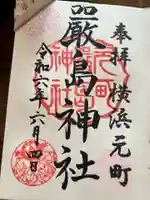 奉拝 横浜元町
嚴島神社
令和六年六月四日